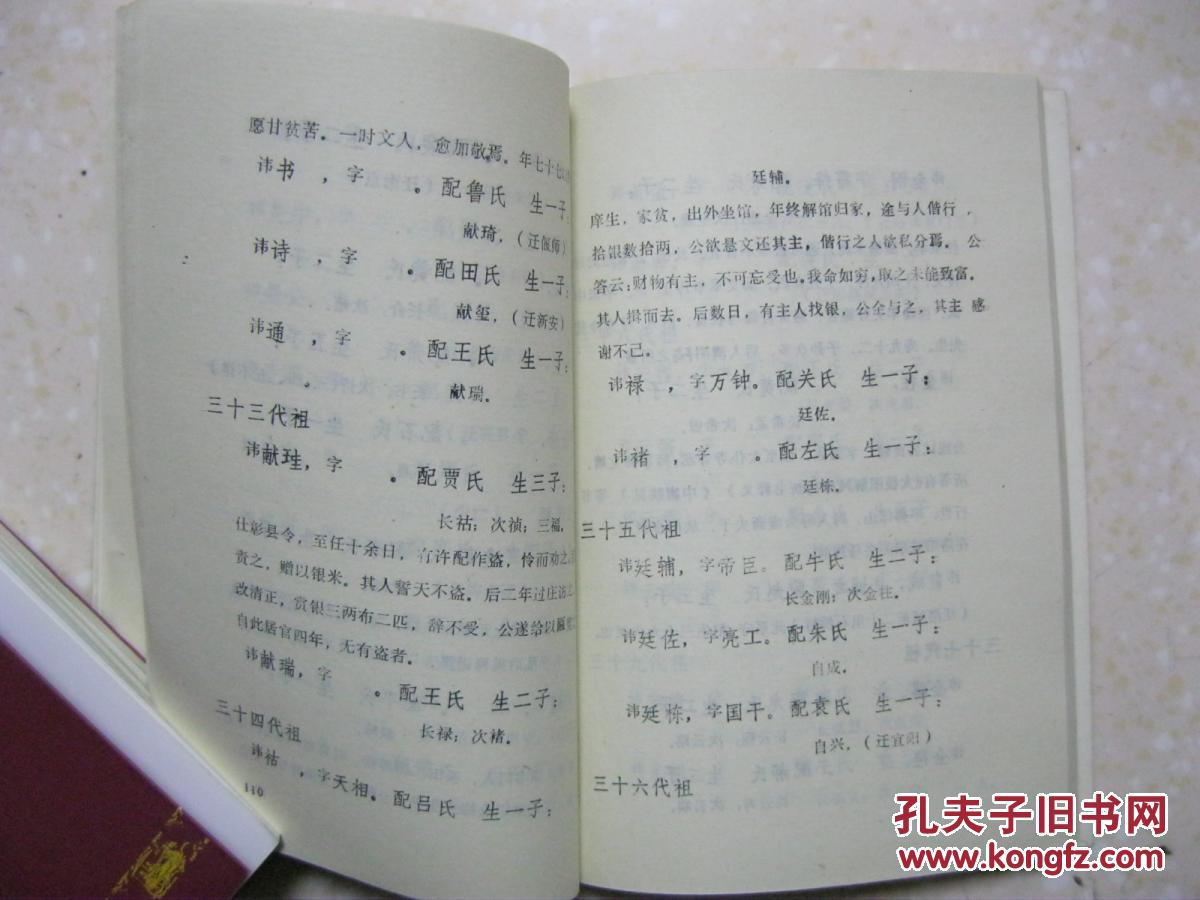 愿甘贫苦。一时文人，愈加敬焉。年七十七
讳书 ，字 。配鲁氏 生一子：
献琦，（迁偃师）
讳诗 ，字 。配田氏 生一子：
献玺，（迁新安）
讳通 ，字 。配王氏 生一子：
献瑞。
三十三代祖
讳献珄，字 。配贾氏 生三子：
长祜；次祯；三福。
仕彰县令，至任十余日，有许配作盗，怜而劝之
责之，赠以银米。其人誓天不盗。后二年过庄访之
改清正，赏银三两布二匹，辞不受，公遂给以
自此居官四年，无有盗者。
讳献瑞，字 。配王氏 生二子：
长禄；次褚。
三十四代祖
讳祜 ，字天相。配吕氏 生一子：
110
廷辅。
庠生，家贫，出外坐馆，年终解馆归家，途与人偕行，
拾银数拾两，公欲悬文还其主，偕行之人欲私分焉。公
答云：财物有主，不可忘受也。我命如穷，取之未能致富。
其人揖而去。后数日，有主人找银，公全与之，其主 感
谢不己。
讳禄 ，字万钟。配关氏 生一子：
廷佐。
讳褚 ，字 。配左氏 生一子：
廷栋。
三十五代祖
讳廷辅，字帝臣。配牛氏 生二子：
长金刚；次金柱。
讳廷佐，字亮工。配朱氏 生一子：
自成。
讳廷栋，字国干。配袁氏 生一子：
自兴，（迁宜阳）
三十六代祖
孔夫子旧书网
www.kongfz.com